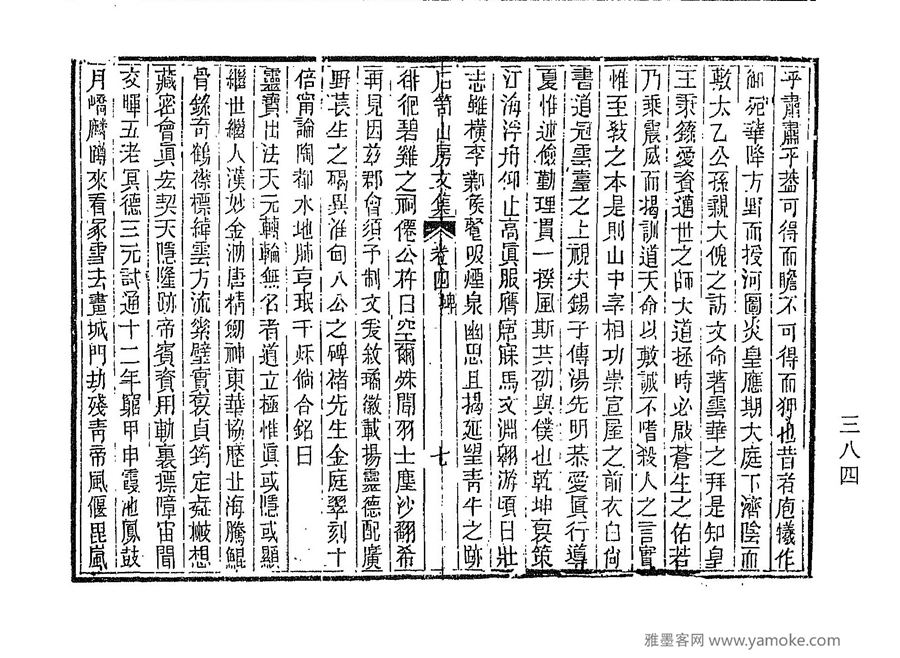 乎肅肅乎蓋可得而瞻不可得而狎也昔者庖犧作
御宛華降方野而授河圖炎皇應期大庭下濟陰而
敷太乙公孫親大隗之訪文命著雲華之拜是知皇
王秉籙愛資邁世之師大道拯時必啟蒼生之佑若
乃乘震威而揭訓道天命以敷誠不嗜殺人之言實
惟至敎之本是則山中宰相功崇宣屋之前衣白尙
書道冠雲臺之上視夫錫子傳湯先明恭愛眞行導
夏惟述儉勤理貫一揆風斯共劭與僕也乾坤袞策
江海浮舟仰止高眞服膺席寐馬文淵翱游頃日壯
志雖橫李鄴侯鼇吸煙泉幽思且揭延望靑牛之跡
石笥山房文集 卷四 碑 七
徘徊碧雞之祠僊公杵臼空爾殊聞羽士塵沙翻希
再見因茲郡會須予制文爰敘璚徽載揚靈德配廣
野萇生之碣異淮甸八公之碑褚先生金庭翠刻十
倍甯論陶都水地肺亨珉千秌倘合銘曰
靈寶出法天元轉輪無名者道立極惟眞或隱或顯
繼世繼人漢妙金泐唐精劒神東華協歷上海騰鯤
骨鎃奇鶴襟標緯雲方流縈璧實裒貞筠定
藏密會眞宏契天隱隆跡帝賓資用勅裏摽障宙間
交暉五老冥德三元試通十二年窮甲申霞池鳳鼓
月嶠麟蹲來看冢雪去畫城門劫殘靑帝風偃毘嵐
三八四
雅墨客网 www.yamoke.com